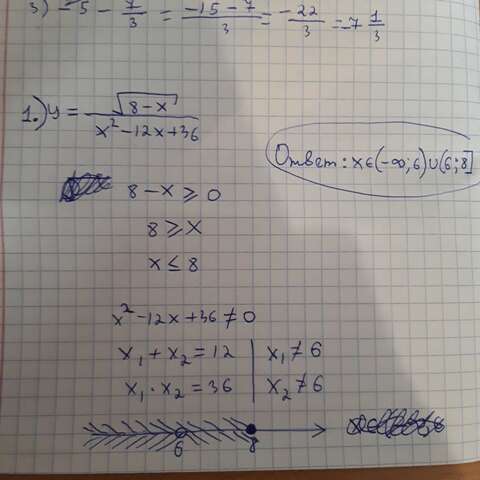 3) -5 - 7/3 = (-15-7)/3 = -22/3 = -7 1/3
1.) y = √(8-x) / (x²-12x+36)
Ответ: x∈(-∞;6)∪(6;8]
8-x ≥ 0
8 ≥ x
x ≤ 8
x²-12x+36≠0
x₁+x₂=12 | x₁≠6
x₁·x₂=36 | x₂≠6
6 8